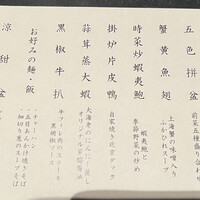 五色拼盆
前菜五種盛り合わせ
蟹黄魚翅
上海蟹の味噌入り
ふかひれスープ
時菜炒蝦夷鮑
蝦夷鮑と
季節野菜の炒め
掛炉片皮鴨
自家焼き北京ダック
蒜茸蒸大蝦
大海老のにんにく蒸し
黒椒牛扒
牛フィレ肉のステーキ
黒胡椒ソース
お好みの麺・飯
・チャーハン
・五目あんかけ焼きそば
・細切り葱のスープそば
涼甜盆